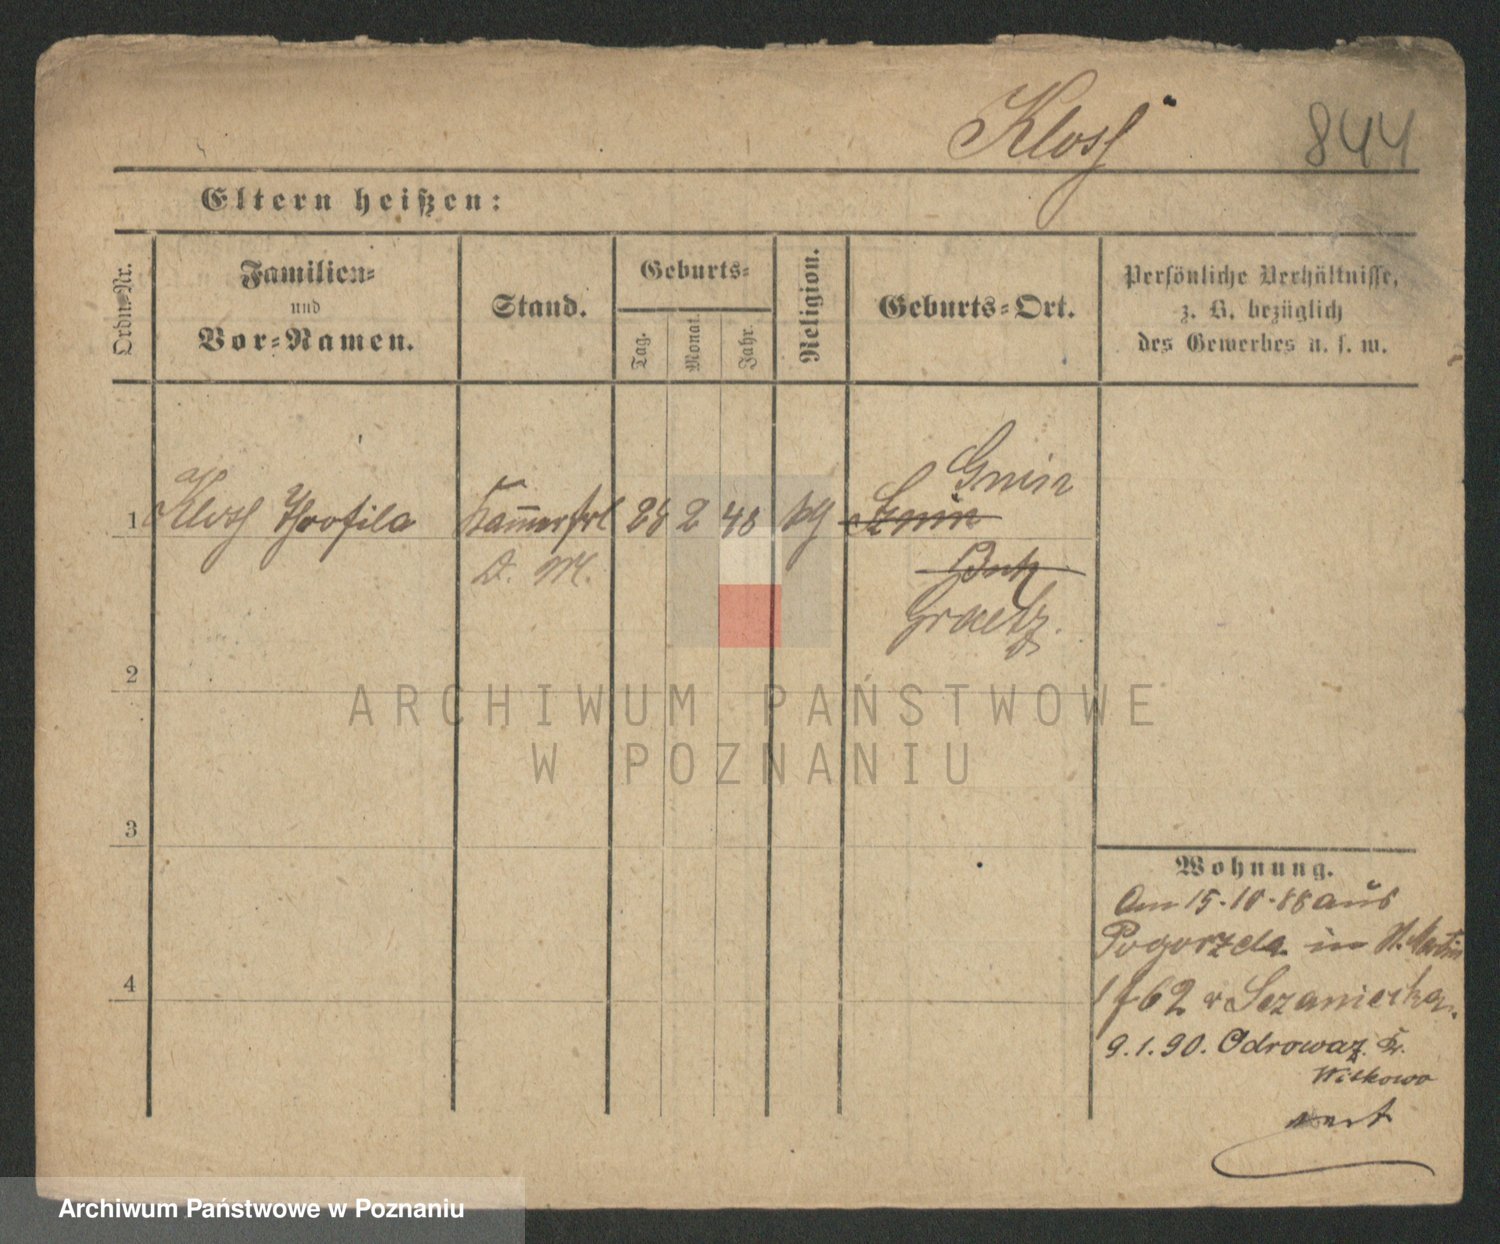 Kloss
844
Eltern heißen:
Ordn.-Nr.
Familien-
und
Vor-Namen.
Stand.
Geburts-
Tag.
Monat.
Jahr.
Religion.
Geburts-Ort.
Persönliche Verhältnisse,
z. B. bezüglich
des Gewerbes u. s. w.
Gnin
1 Kloss Throfila 28 2 48
Znin
D. M.
Buk
Graetz.
2
ARCHIWUM PAŃSTWOWE
W POZNANIU
3
Wohnung.
Am 15.10.88 aus
Pogorzela in St. Martin
4
62 v Sczaniecka.
9.1.90. Odrowaz Kr.
Witkowo
Archiwum Państwowe w Poznaniu